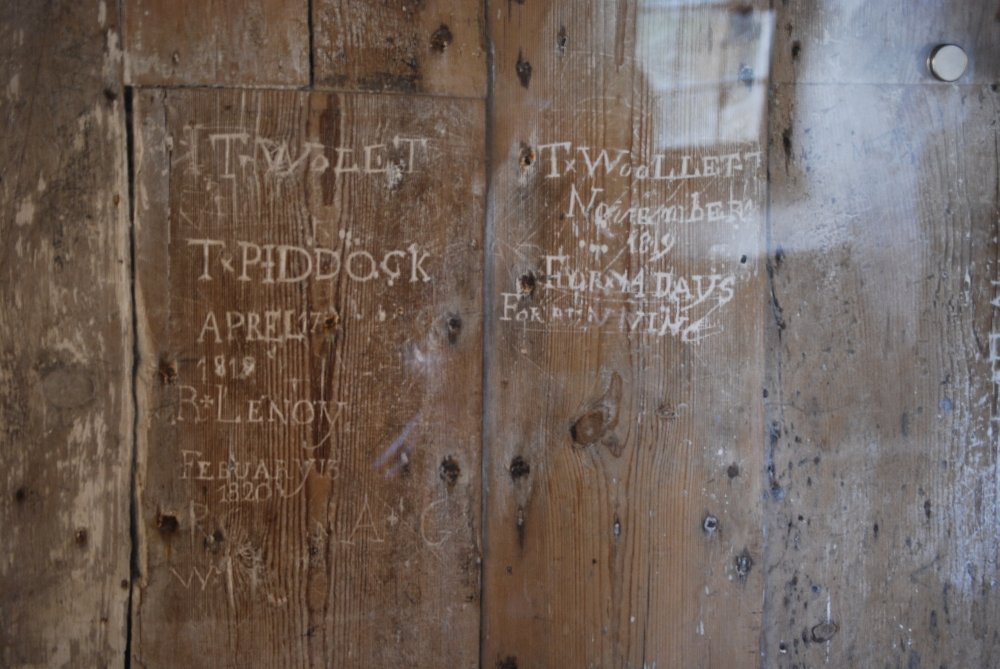 T×WOLLET
T×PIDDOCK
APREL 17
1819
R*LENOY
FEBUARY 13
1820
A G
W
T×WOOLLETT
November
1819
FOR 14 DAYS
FOR RUNNING